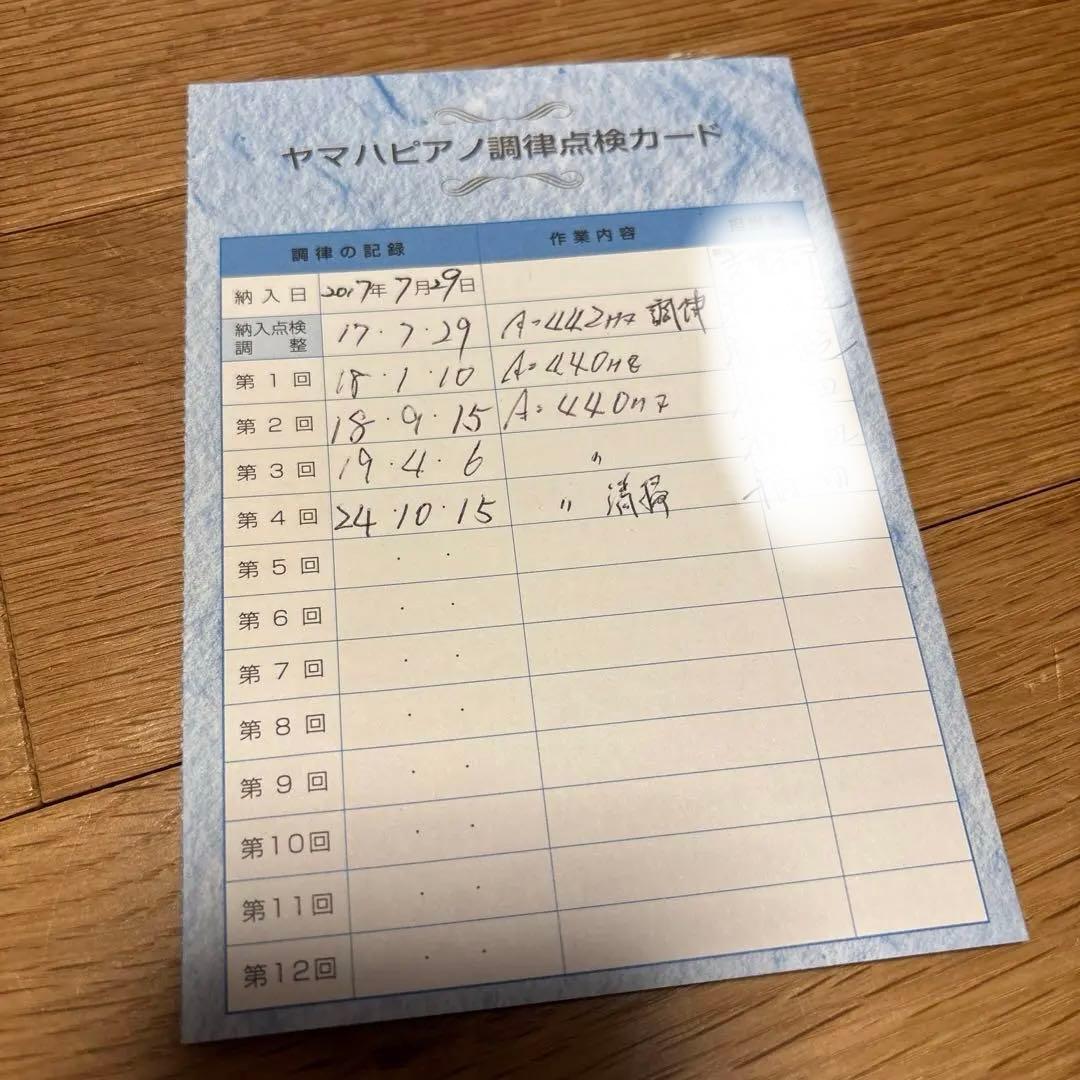 ヤマハピアノ調律点検カード
調律の記録 作業内容
納入日 2017年7月29日
納入点検調整 17・7・29 A=442Hz 調律
第1回 18・1・10 A=440Hz
第2回 18・9・15 A=440Hz
第3回 19・4・6 〃
第4回 24・10・15 〃 清掃
第5回 ・ ・
第6回 ・ ・
第7回 ・ ・
第8回 ・ ・
第9回 ・ ・
第10回 ・ ・
第11回 ・ ・
第12回 ・ ・